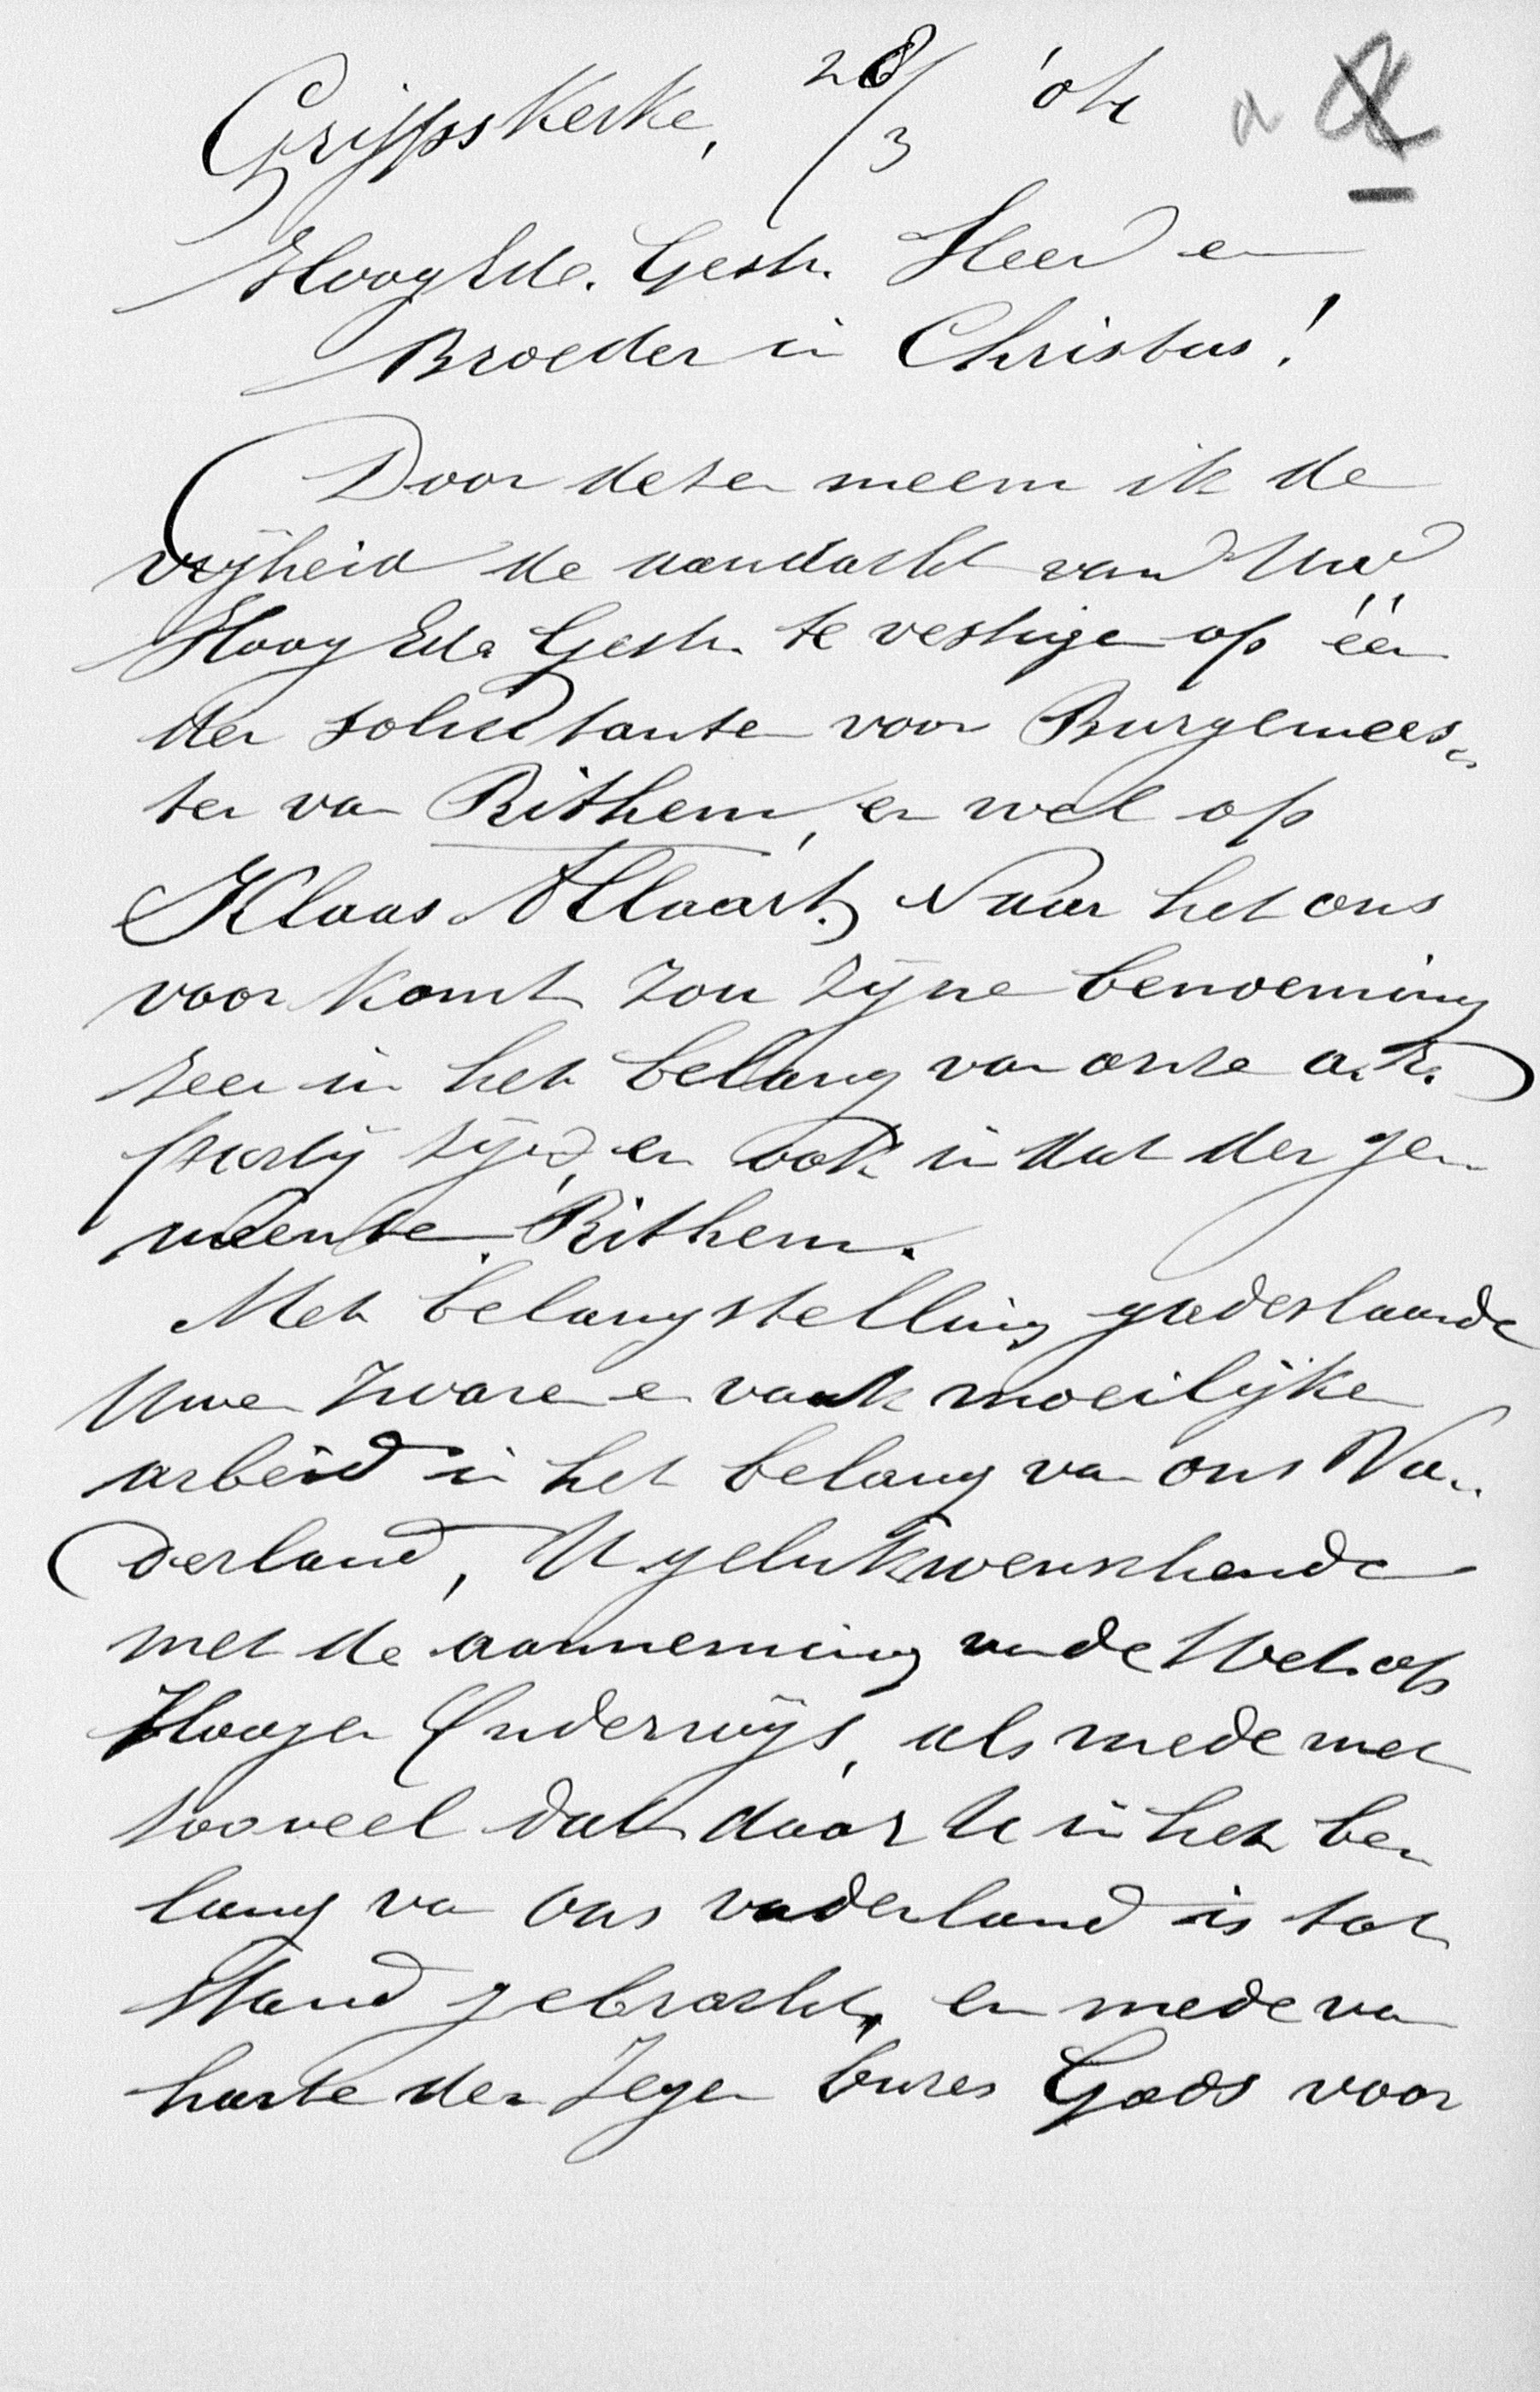 Grijpskerke, 28/3 '04
HoogEde. Gestr. Heer en
Broeder in Christus!
Door dezen neem ik de
vrijheid de aandacht van Uw
Hoog Ede Gestr. te vestigen op één
der solicitanten voor Burgemees-
ter van Rithem, en wel op
Klaas Allaart. Naar het ons
voor komt zou zijne benoeming
zeer in het belang van onze a.r.
partij zijn, en ook in dat der ge-
meente Rithem.
Met belangstelling gadeslaande
Uwen zwaren en vaak moeilijken
arbeid in het belang van ons Va-
derland, U gelukwenschende
met de aanneming van de Wet op
Hooger Onderwijs, als mede met
zooveel dat door U in het be-
lang van ons vaderland is tot
stand gebracht, en mede van
harte den Zegen onzes Gods voor